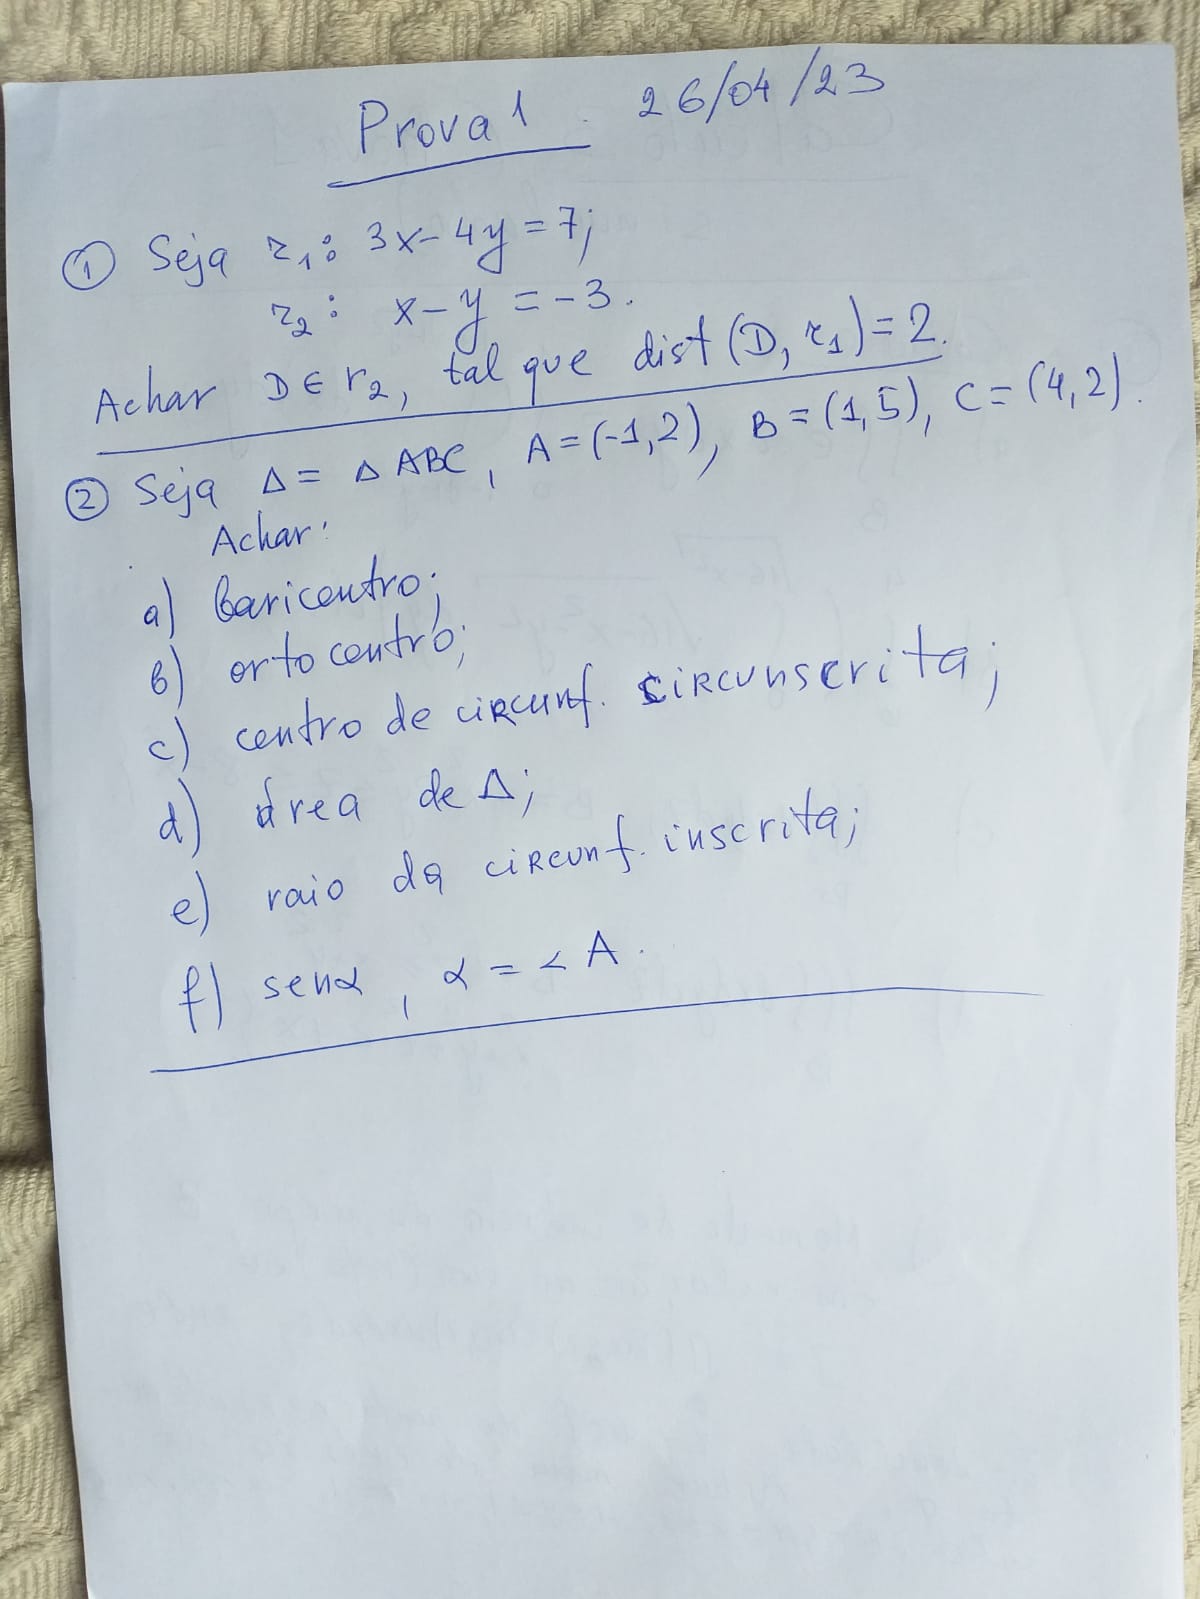 Prova 1. 26/04/23
① Seja r₁: 3x-4y=7;
r₂: x-y=-3.
Achar D∈r₂, tal que dist(D, r₁)=2.
② Seja Δ= ΔABC, A=(-1,2), B=(1,5), C=(4,2).
Achar:
a) baricentro;
b) ortocentro;
c) centro de circunf. circunscrita;
d) área de Δ;
e) raio da circunf. inscrita;
f) senα, α=∠A.